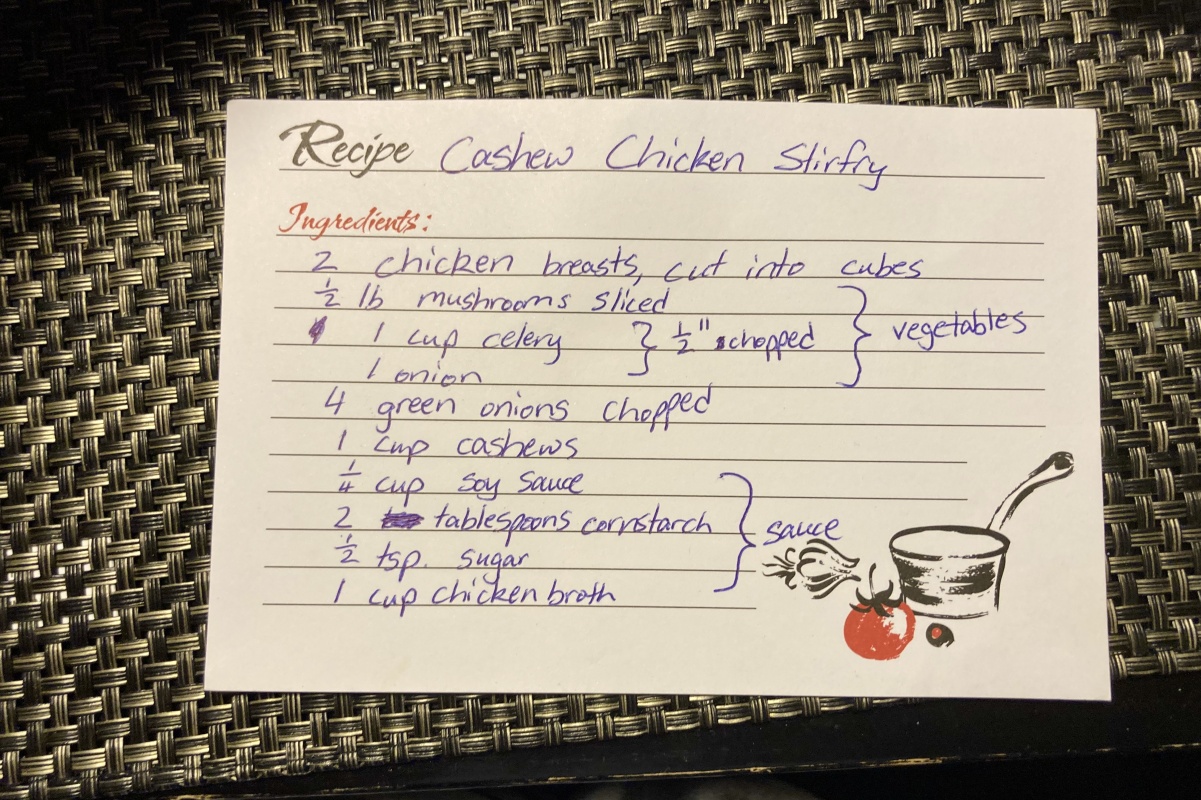 Recipe Cashew Chicken Stirfry
Ingredients:
2 chicken breasts, cut into cubes
1/2 lb mushrooms sliced
1 cup celery } 1/2" chopped } vegetables
1 onion
4 green onions chopped
1 cup cashews
1/4 cup soy sauce
2 tablespoons cornstarch } sauce
1/2 tsp. sugar
1 cup chicken broth